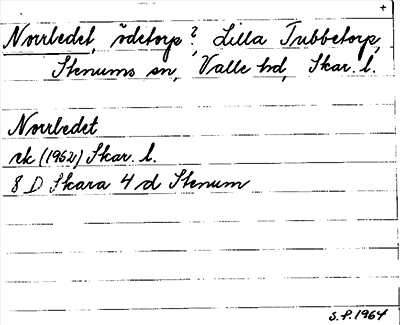 +
Norrledet, ödetorp?, Lilla Tubbetorp,
Stenums sn, Valle hd, Skar. l.
Norrledet
ek (1962) Skar. l.
8 D Skara 4 d Stenum
S.P. 1964